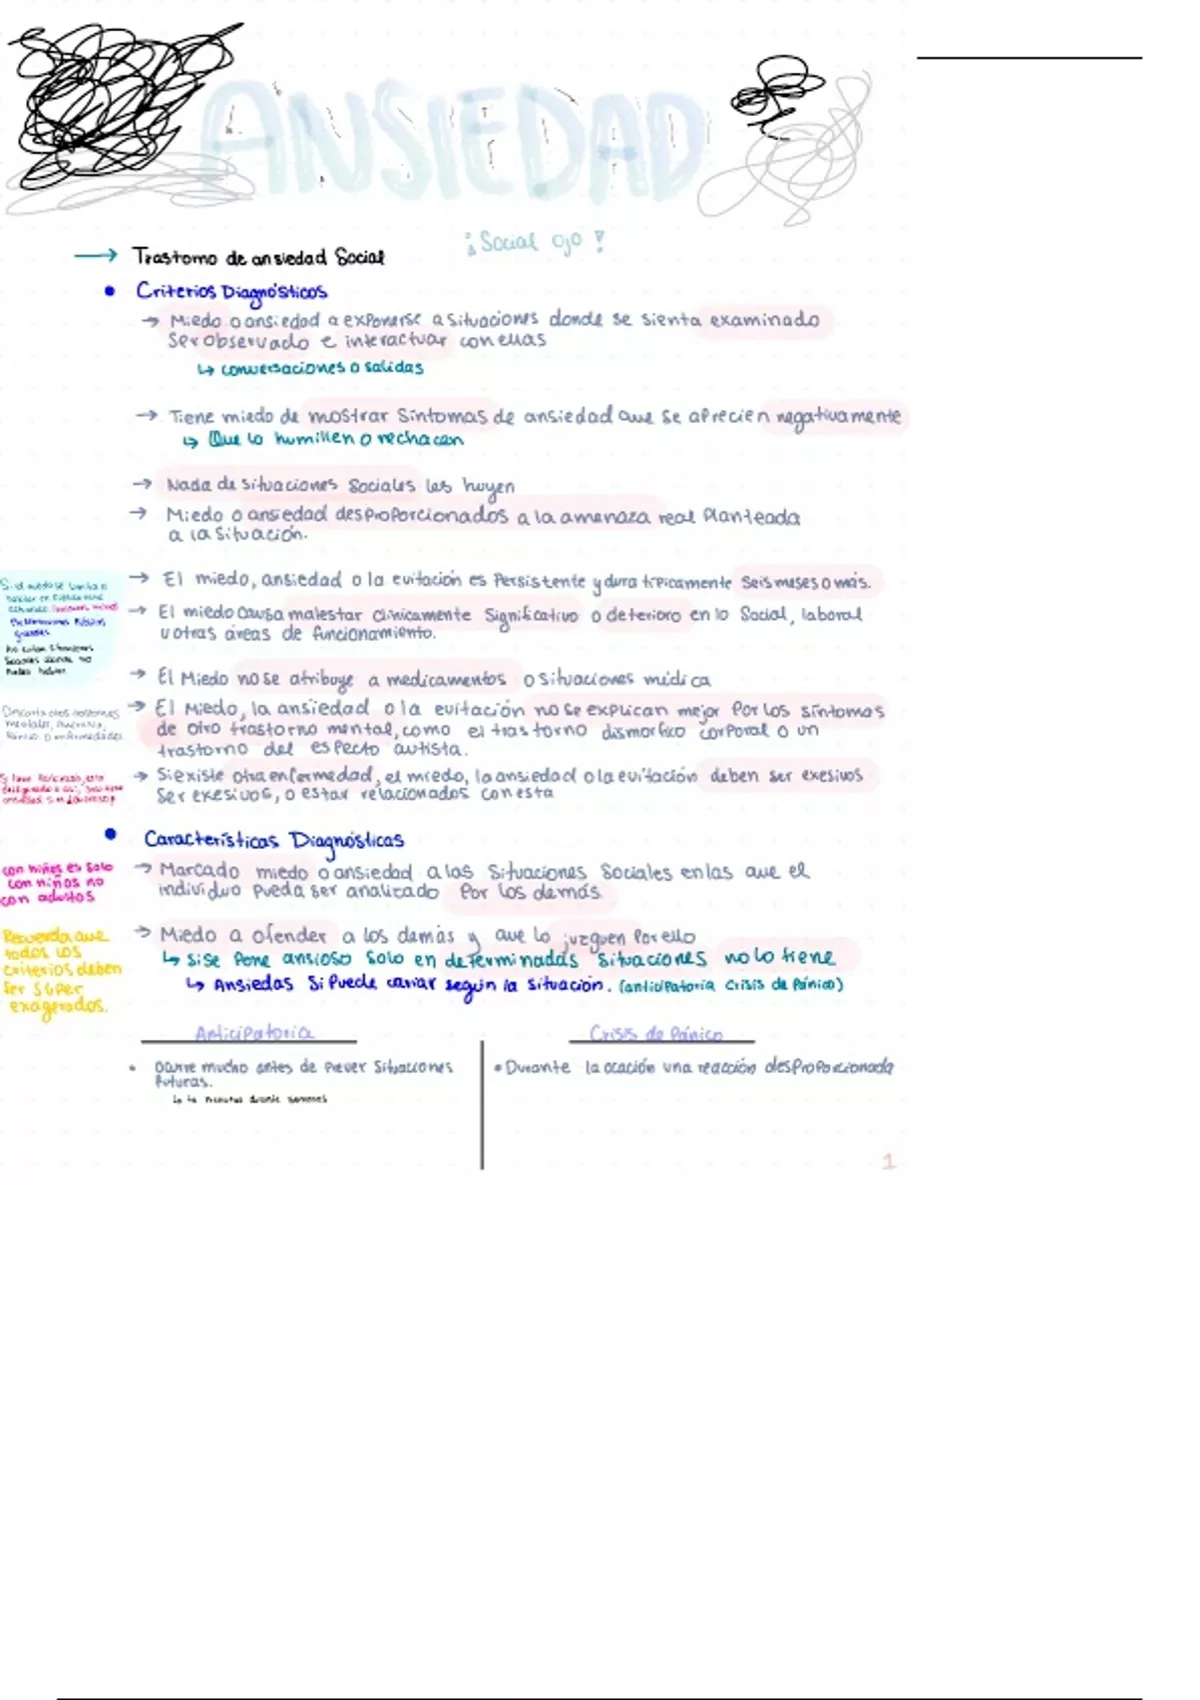 ANSIEDAD
¡Social ojo!
→ Trastorno de ansiedad Social
• Criterios Diagnósticos
→ Miedo o ansiedad a exponerse a situaciones donde se sienta examinado
Ser observado e interactuar con ellas
↳ conversaciones o salidas
→ Tiene miedo de mostrar Sintomas de ansiedad que se aprecien negativamente
↳ Que lo humillen o rechacen
→ Nada de situaciones Sociales les huyen
→ Miedo o ansiedad desproporcionados a la amenaza real Planteada
a la Situación.
→ El miedo, ansiedad o la evitación es Persistente y dura tipicamente seis meses o más.
→ El miedo causa malestar clinicamente Significativo o deterioro en lo Social, laboral
u otras áreas de funcionamiento.
→ El Miedo no se atribuye a medicamentos o situaciones médica
→ El Miedo, la ansiedad o la evitación no se explican mejor Por los síntomas
de otro trastorno mental, como el trastorno dismorfico corporal o un
trastorno del espectro autista.
→ Si existe otra enfermedad, el miedo, la ansiedad o la evitación deben ser exesivos
Ser exesivos, o estar relacionados con esta
• Características Diagnósticas
→ Marcado miedo o ansiedad a las Situaciones Sociales en las que el
individuo pueda ser analizado Por los demás
con niños es solo
con niños no
con adultos
→ Miedo a ofender a los demás y que lo juzguen Por ello
↳ si se Pone ansioso Solo en determinadas situaciones no lo tiene
↳ Ansiedas Si Puede caviar según la situación. (anticipatoria Crisis de Pánico)
Recuerda que
todos los
criterios deben
ser súper
exagerados.
Anticipatoria
• Ocurre mucho antes de Prever Situaciones
futuras.
Crisis de Pánico
• Durante la ocación una reacción desproporcionada
1